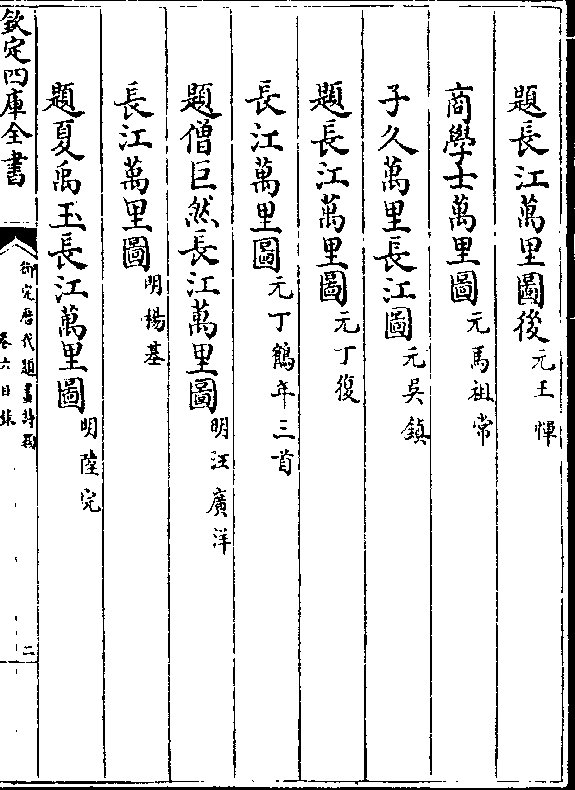 題長江萬里圖後 元王惲
商學士萬里圖 元馬祖常
子久萬里長江圖 元吳鎮
題長江萬里圖 元丁復
長江萬里圖 元丁鶴年三首
題僧巨然長江萬里圖 明汪廣洋
長江萬里圖 明楊基
題夏禹玉長江萬里圖 明陸完
欽定四庫全書
御定歷代題畫詩類
卷六目錄
二